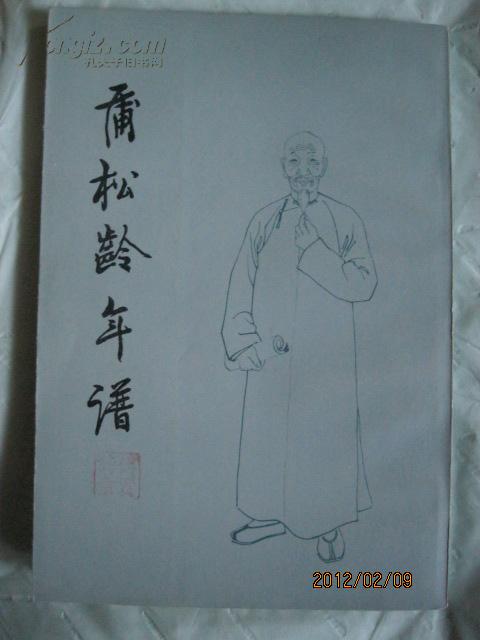 Kongfz.com
孔夫子旧书网
蒲松齡年谱
2012/02/09